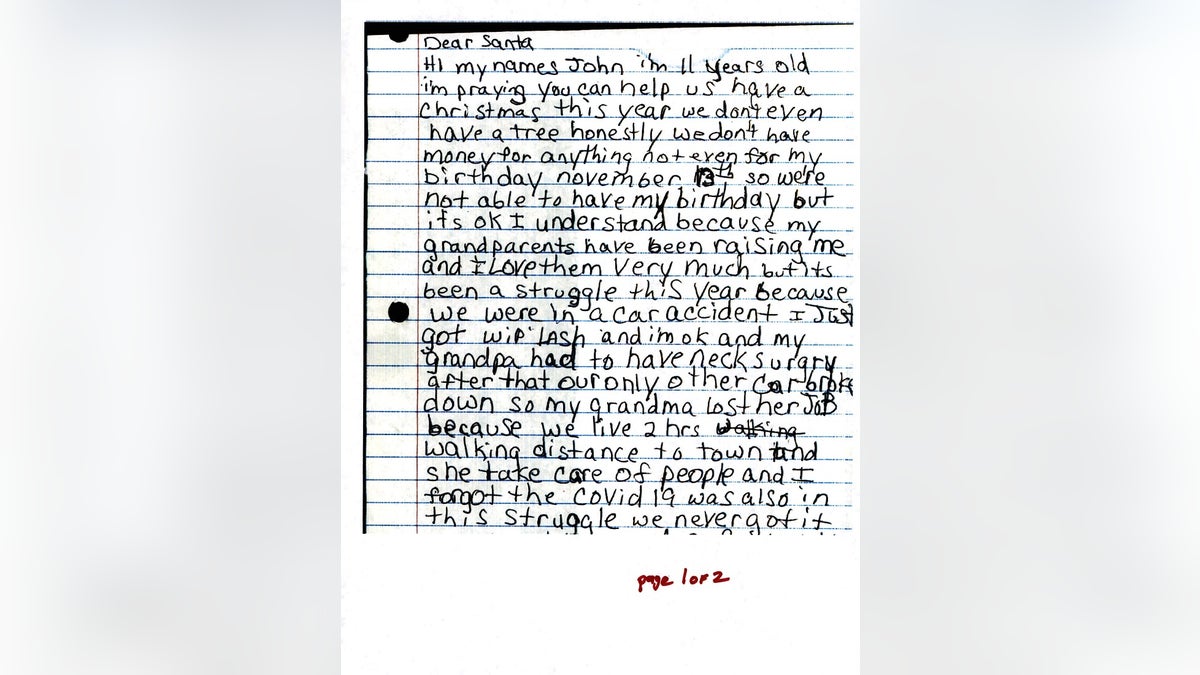 Dear Santa
Hi my names John i'm 11 years old
i'm praying you can help us have a
christmas this year we don't even
have a tree honestly we don't have
money for anything not even for my
birthday november 13th so we're
not able to have my birthday but
its ok I understand because my
grandparents have been raising me
and I Love them Very much but its
been a struggle this year because
we were in a car accident I Just
got wip lash and im ok and my
grandpa had to have neck surgry
after that our only other car broke
down so my grandma lost her JoB
because we live 2 hrs walking
walking distance to town and
she take care of people and I
forgot the covid 19 was also in
this struggle we never got it
page 1 of 2